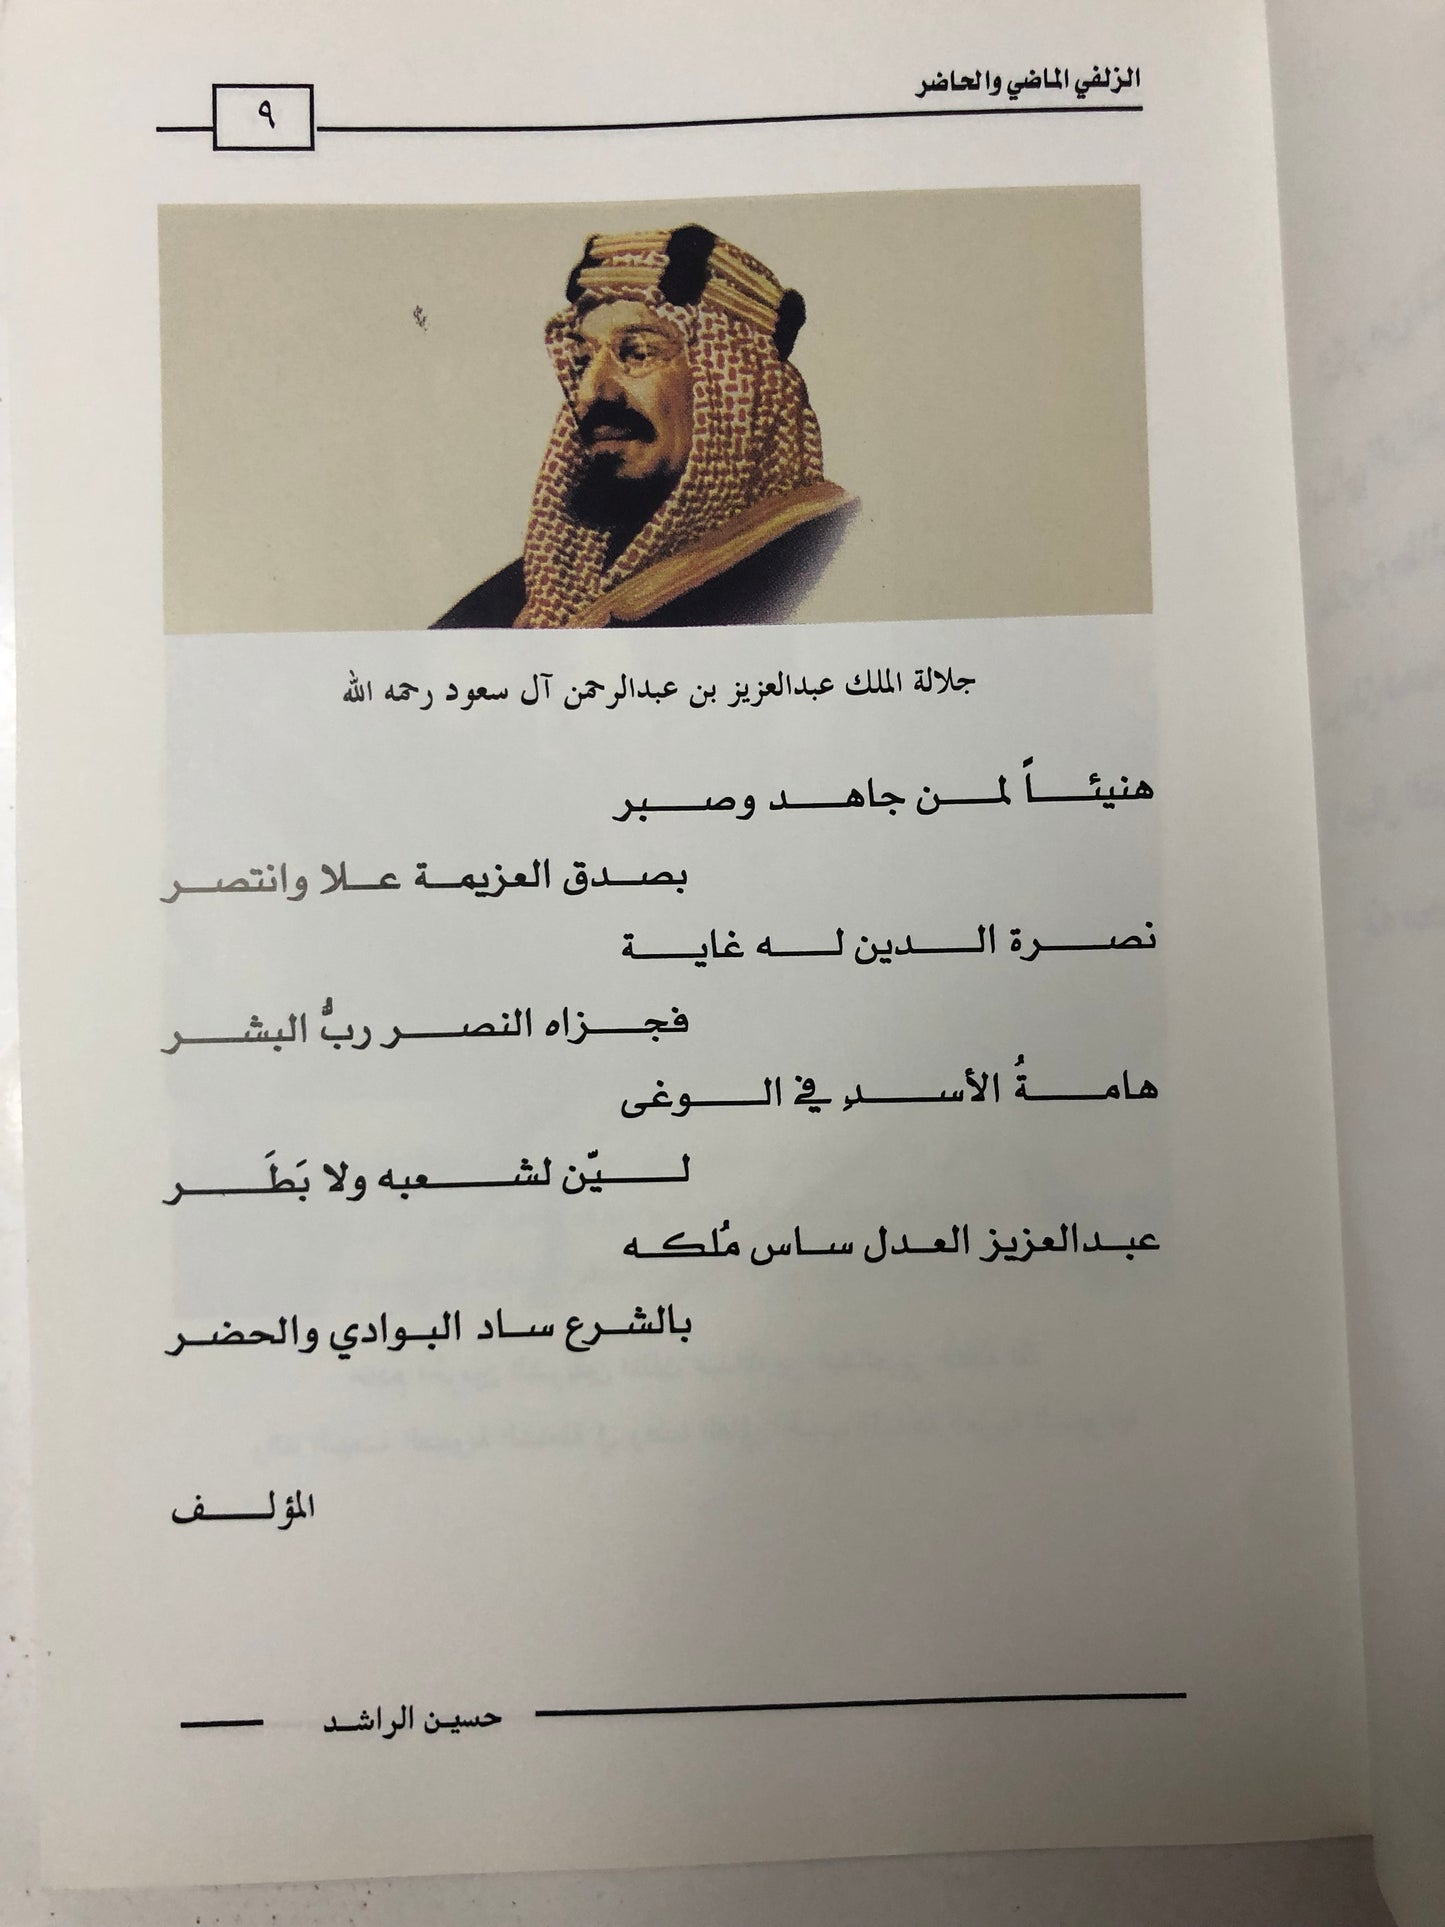 الزلفي الماضي والحاضر
٩
جلالة الملك عبدالعزيز بن عبدالرحمن آل سعود رحمه الله
هنيئاً لمن جاهد وصبر
بصدق العزيمة علا وانتصر
نصرة الدين له غاية
فجزاه النصر ربُّ البشر
هامةُ الأسدِ في الوغى
ليّن لشعبه ولا بَطَر
عبدالعزيز العدل ساس مُلكه
بالشرع ساد البوادي والحضر
المؤلف
حسين الراشد